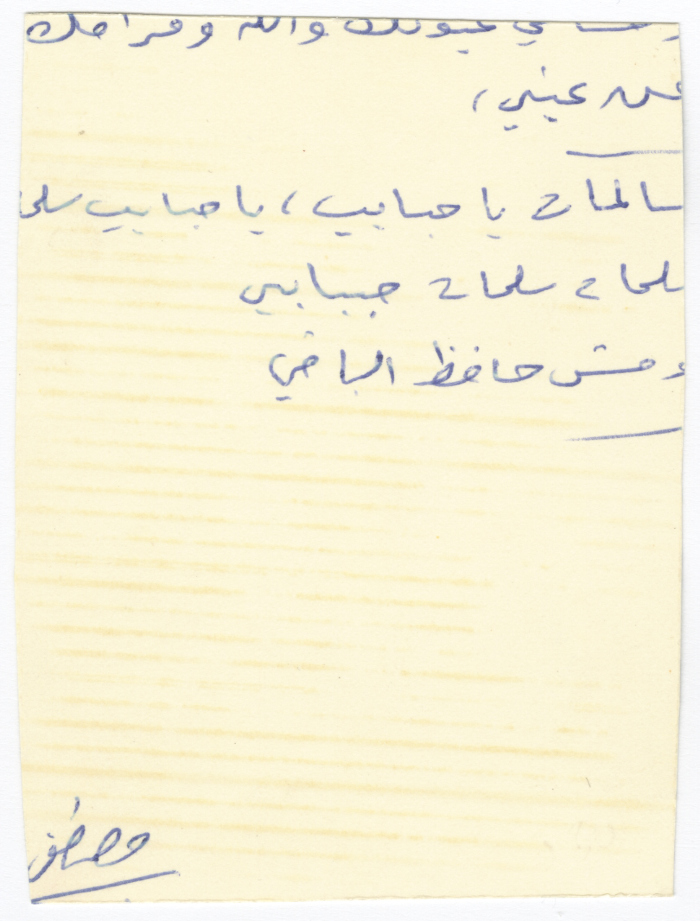 عيونك والله وفراقك
عن عيني،
سالمات يا حبايب، يا حبايب سلما
سلمات سلمات حبايبي
ومش حافظ الباقي
مصطفى